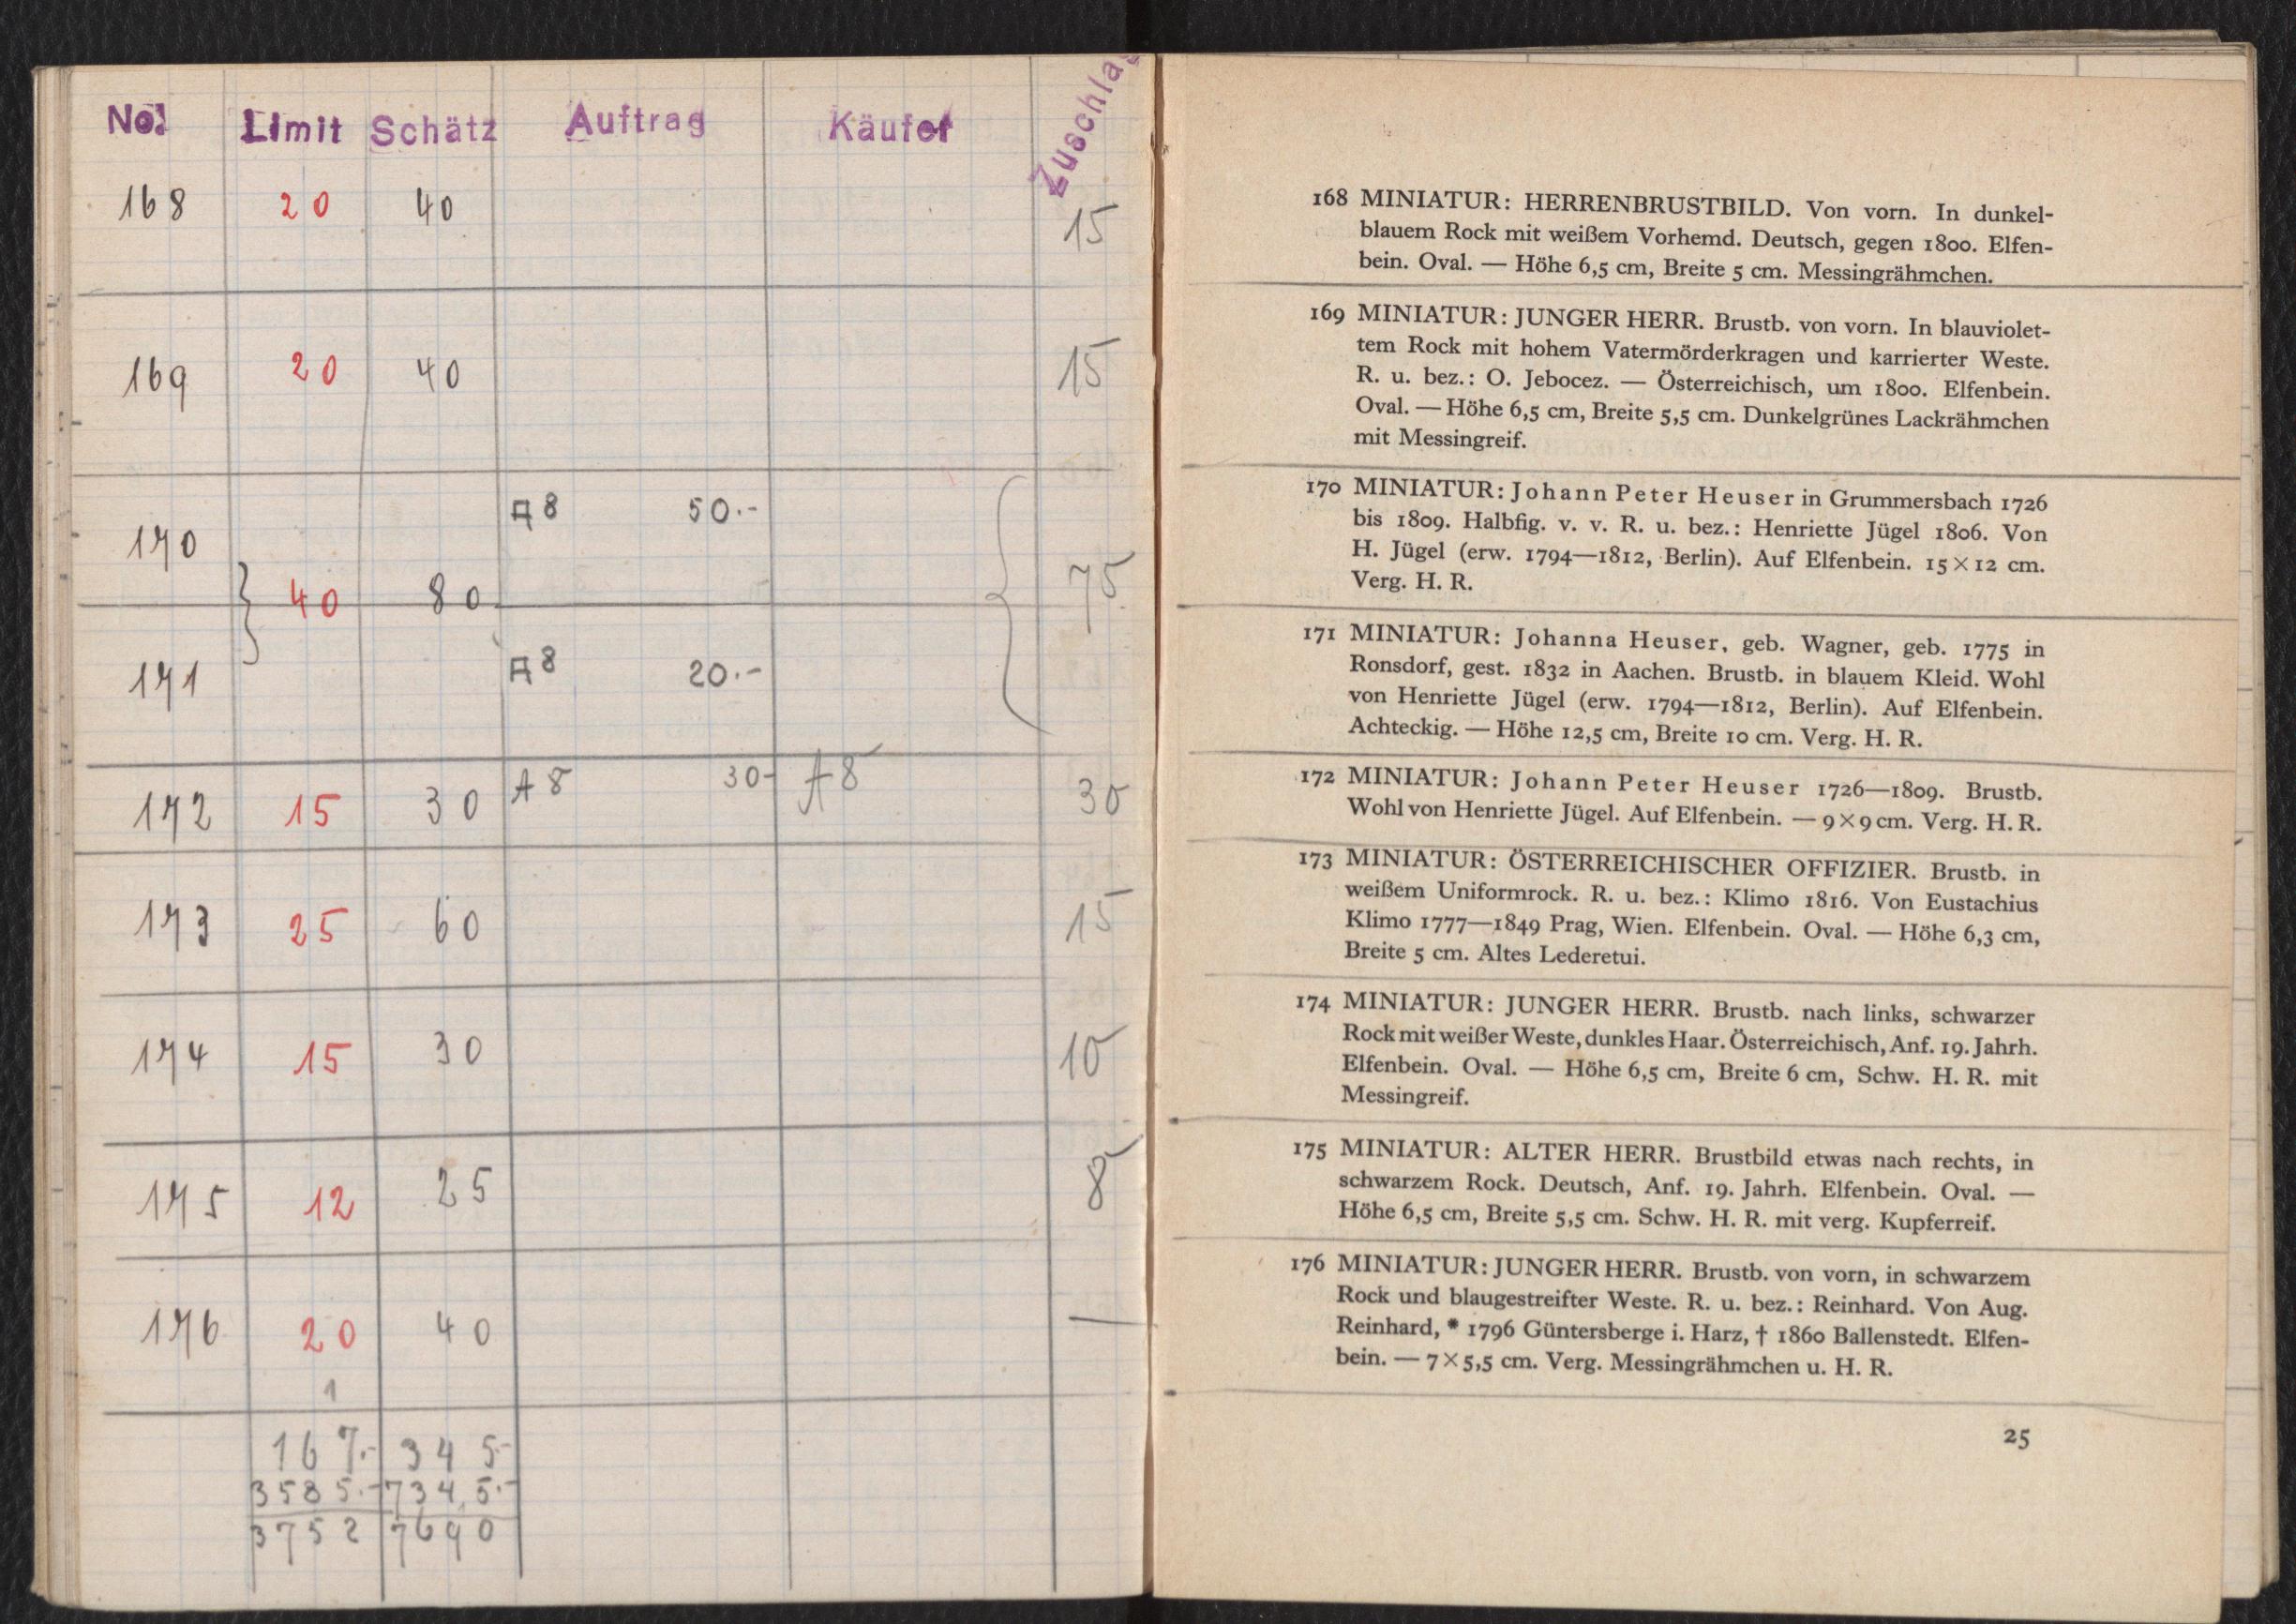 No. Limit Schätz Auftrag Käufer Zuschlag
168 20 40 15
169 20 40 15
A8 50.-
170
} 40 80 { 75
171 A8 20.-
172 15 30 A8 30- A8 30
173 25 60 15
174 15 30 10
175 12 25 8
176 20 40 —
1
167.- 345-
3585.- 7345.-
3752 7690
168 MINIATUR: HERRENBRUSTBILD. Von vorn. In dunkel-
blauem Rock mit weißem Vorhemd. Deutsch, gegen 1800. Elfen-
bein. Oval. — Höhe 6,5 cm, Breite 5 cm. Messingrähmchen.
169 MINIATUR: JUNGER HERR. Brustb. von vorn. In blauviolet-
tem Rock mit hohem Vatermörderkragen und karrierter Weste.
R. u. bez.: O. Jebocez. — Österreichisch, um 1800. Elfenbein.
Oval. — Höhe 6,5 cm, Breite 5,5 cm. Dunkelgrünes Lackrähmchen
mit Messingreif.
170 MINIATUR: Johann Peter Heuser in Grummersbach 1726
bis 1809. Halbfig. v. v. R. u. bez.: Henriette Jügel 1806. Von
H. Jügel (erw. 1794—1812, Berlin). Auf Elfenbein. 15×12 cm.
Verg. H. R.
171 MINIATUR: Johanna Heuser, geb. Wagner, geb. 1775 in
Ronsdorf, gest. 1832 in Aachen. Brustb. in blauem Kleid. Wohl
von Henriette Jügel (erw. 1794—1812, Berlin). Auf Elfenbein.
Achteckig. — Höhe 12,5 cm, Breite 10 cm. Verg. H. R.
172 MINIATUR: Johann Peter Heuser 1726—1809. Brustb.
Wohl von Henriette Jügel. Auf Elfenbein. — 9×9 cm. Verg. H. R.
173 MINIATUR: ÖSTERREICHISCHER OFFIZIER. Brustb. in
weißem Uniformrock. R. u. bez.: Klimo 1816. Von Eustachius
Klimo 1777—1849 Prag, Wien. Elfenbein. Oval. — Höhe 6,3 cm,
Breite 5 cm. Altes Lederetui.
174 MINIATUR: JUNGER HERR. Brustb. nach links, schwarzer
Rock mit weißer Weste, dunkles Haar. Österreichisch, Anf. 19. Jahrh.
Elfenbein. Oval. — Höhe 6,5 cm, Breite 6 cm, Schw. H. R. mit
Messingreif.
175 MINIATUR: ALTER HERR. Brustbild etwas nach rechts, in
schwarzem Rock. Deutsch, Anf. 19. Jahrh. Elfenbein. Oval. —
Höhe 6,5 cm, Breite 5,5 cm. Schw. H. R. mit verg. Kupferreif.
176 MINIATUR: JUNGER HERR. Brustb. von vorn, in schwarzem
Rock und blaugestreifter Weste. R. u. bez.: Reinhard. Von Aug.
Reinhard, * 1796 Güntersberge i. Harz, † 1860 Ballenstedt. Elfen-
bein. — 7×5,5 cm. Verg. Messingrähmchen u. H. R.
25